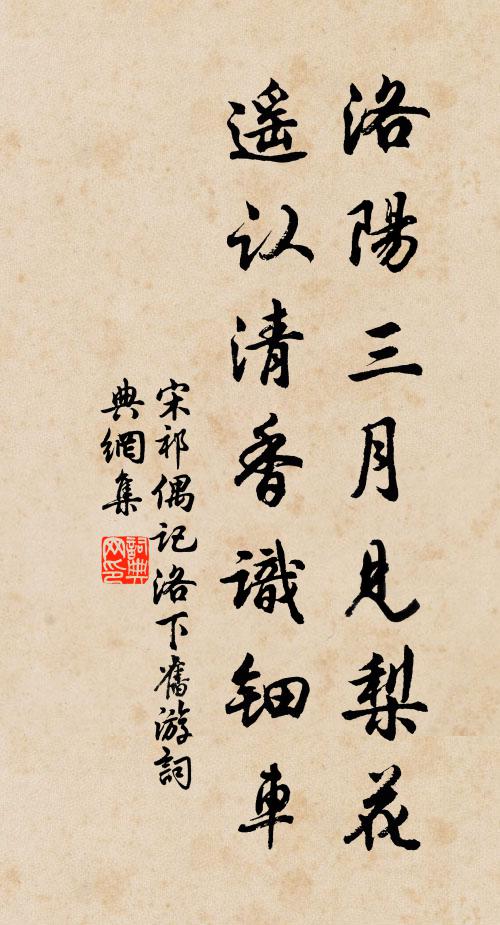 洛陽三月見梨花
遥认清香識钿車
宋祁偶记洛下舊游詞
典網集
詞典
网印